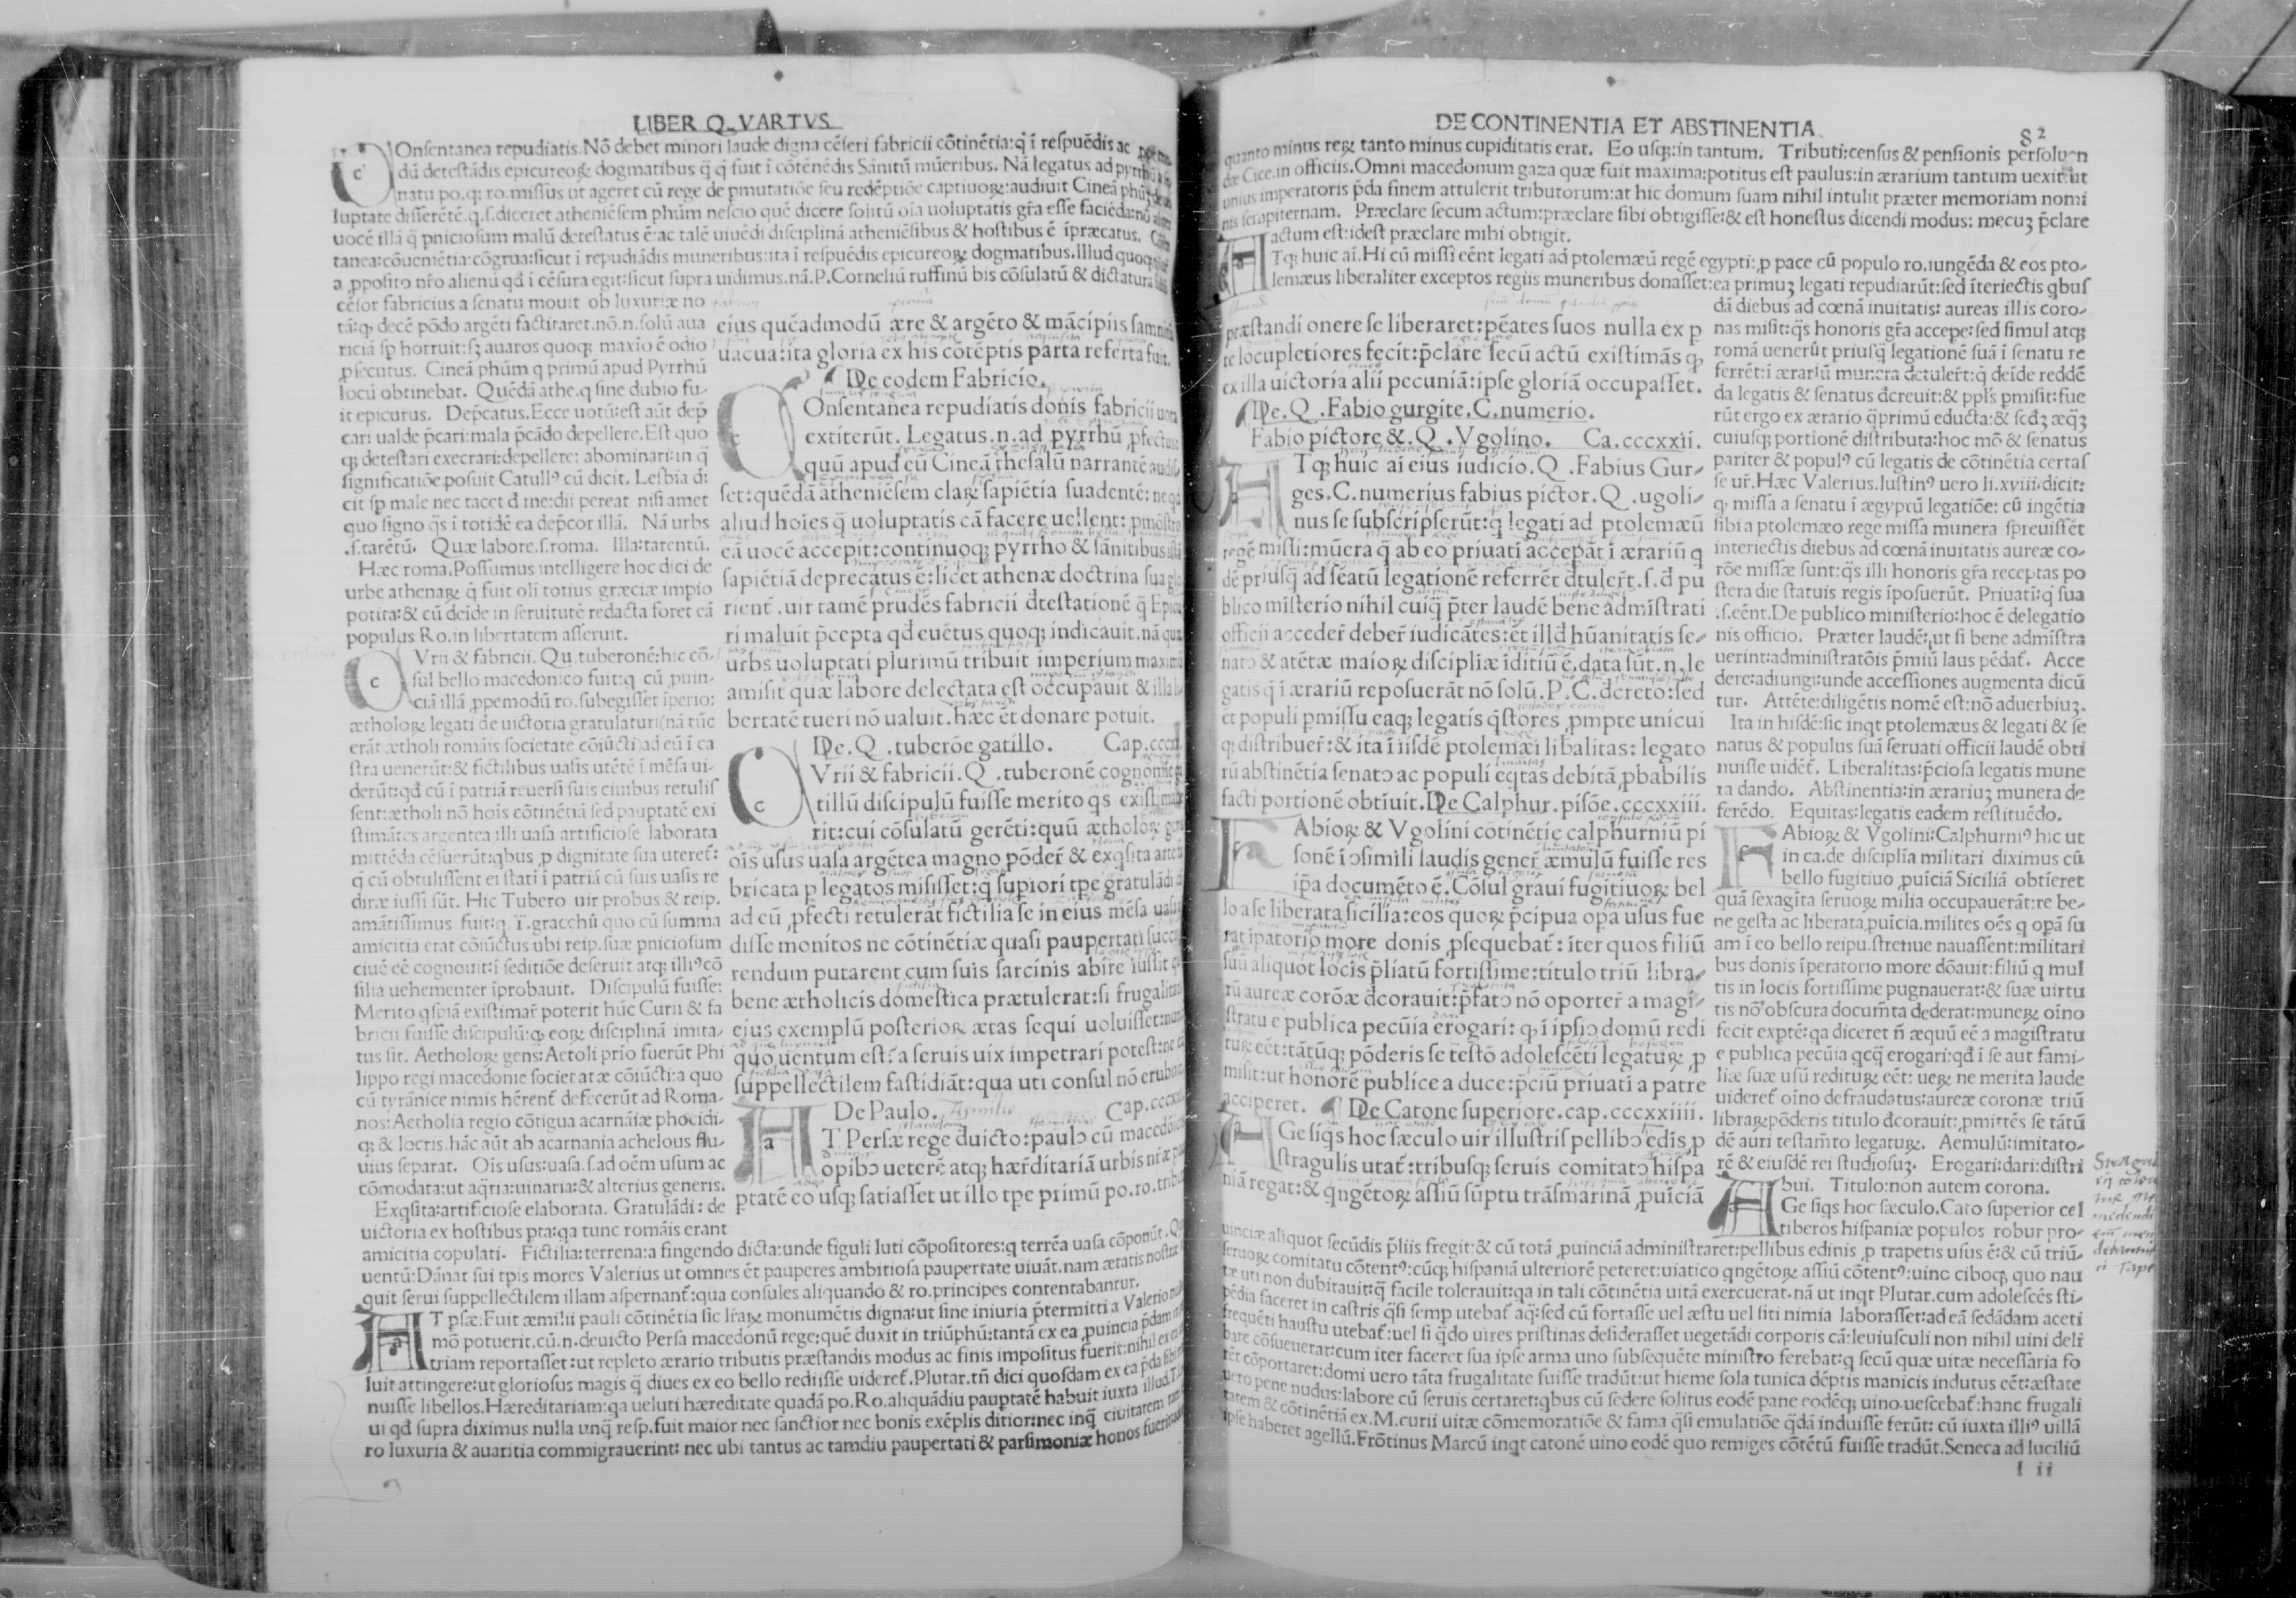 LIBER Q.VARTVS
Onsentanea repudiatis.Nō debet minori laude digna cēseri fabricii cōtinētia:q̄ ī respuēdis ac
dū detestādis epicureoꝝ dogmatibus q̄ q̄ fuit ī cōtēnēdis Sānitū mūeribus. Nā legatus ad pyrrhū
natu po.q; ro.missus ut ageret cū rege de pmutatiōe seu redēptiōe captiuoꝝ:audiuit Cineā phūʒ
luptate disserētē.q.s.diceret atheniēsem phūm nescio quē dicere solitū oīa uoluptatis gr̄a esse faciēda:nō
uocē illā q̄ pniciosum malū detestatus ē:ac talē uiuēdi disciplinā atheniēsibus & hostibus ē īpræcatus.
tanea:cōueniētia:cōgrua:sicut ī repudiādis muneribus:ita ī respuēdis epicureoꝝ dogmatibus.Illud quoq;
a pposito nr̄o alienū qd̄ ī cēsura egit:sicut supra uidimus.nā.P.Corneliū ruffinū bis cōsulatū & dictatura
cēsor fabricius a senatu mouit ob luxuriæ no
tā:q; decē pōdo argēti factitaret.nō.n.solū aua
riciā sp horruit:sʒ auaros quoq; maxio ē odio
psecutus. Cineā phūm q primū apud Pyrrhū
locū obtinebat. Quēdā athe.q sine dubio fu-
it epicurus. Dep̄catus.Ecce uotū:est aūt dep̄
cari ualde p̄cari:mala p̄cādo depellere.Est quo
q; detestari execrari:depellere: abominari:in q̄
significatiōe posuit Catullꝰ cū dicit. Lesbia di
cit sp male nec tacet đ me:dii pereat nisi amet
quo signo q̄s ī totidē ea dep̄cor illā. Nā urbs
.s.tarētū. Quæ labore.s.roma. Illa:tarentū.
Hæc roma.Possumus intelligere hoc dici de
urbe athenaꝝ q̄ fuit oli totius græciæ impio
potita:& cū deīde in seruitutē redacta foret eā
populus Ro.in libertatem asseruit.
Vrii & fabricii. Qu.tuberonē:hic cō-
sul bello macedonico fuit:q cū puin-
ciā illā ppemodū ro.subegisset īperio:
ætholoꝝ legati de uictoria gratulaturi(nā tūc
erāt ætholi romāis societate cōiūcti)ad eū ī ca
stra uenerūt:& fictilibus uasis utētē ī mēsa ui-
derūt:qd̄ cū ī patriā reuersi suis ciuibus retulis
sent:ætholi nō hoīs cōtinētiā sed pauptatē exi
stimātes argentea illi uasa artificiose laborata
mittēda cēsuerūt:qbus p dignitate sua uteret̄:
q̄ cū obtulissent ei stati ī patriā cū suis uasis re
diræ iussi sūt. Hic Tubero uir probus & reip.
amātissimus fuit:q T.gracchū quo cū summa
amicitia erat cōiūctus ubi reip.suæ pniciosum
ciuē eē cognouit:ī seditiōe deseruit atq; illiꝰ cō
silia uehementer īprobauit. Discipulū fuisse:
Merito qspiā existimar̄ poterit hūc Curii & fa
bricii fuisse discipulū:q; eoꝝ disciplinā imita-
tus sit. Aetholoꝝ gens:Aetoli prio fuerūt Phi
lippo regi macedonie societatæ cōiūcti:a quo
cū tyrānice nimis hērent̄ defecerūt ad Roma-
nos:Aetholia regio cōtigua acarnāiæ phocidi-
q; & locris.hāc aūt ab acarnania achelous flu-
uius separat. Oīs usus:uasa.s.ad oēm usum ac
cōmodata:ut aq̄ria:uinaria:& alterius generis.
Exqsita:artificiose elaborata. Gratulādi: de
uictoria ex hostibus pta:qa tunc romāis erant
amicitia copulati. Fictilia:terrena:a fingendo dicta:unde figuli luti cōpositores:q terrēa uasa cōponūt.
uentū:Dānat sui tpis mores Valerius ut omnes ēt pauperes ambitiosa paupertate uiuāt.nam ætatis nostræ
quit serui suppellectilem illam aspernant̄:qua consules aliquando & ro.principes contentabantur.
T psæ:Fuit æmilii pauli cōtinētia sic lr̄aꝝ monumētis digna:ut sine iniuria p̄termitti a Valerio
mō potuerit.cū.n.deuicto Persa macedonū rege:quē duxit in triūphū:tantā ex ea puincia p̄dam
triam reportasset:ut repleto ærario tributis præstandis modus ac finis impositus fuerit:nihil ex ea
luit attingere:ut gloriosus magis q̄ diues ex eo bello rediisse uideret̄.Plutar.tn̄ dici quosdam ex ea p̄da
nuisse libellos.Hæreditariam:qa ueluti hæreditate quadā po.Ro.aliquādiu pauptatē habuit iuxta illud.
ui qd̄ supra diximus nulla unq̄ resp.fuit maior nec sanctior nec bonis exēplis ditior:nec inq̄ ciuitatem
ro luxuria & auaritia commigrauerint: nec ubi tantus ac tamdiu paupertati & parsimoniæ honos fuerit
eius quēadmodū ære & argēto & mācipiis
uacua:ita gloria ex his cōtēptis parta referta fuit.
De eodem Fabricio.
Onsentanea repudiatis donis fabricii
extiterūt. Legatus.n.ad pyrrhū pfectus
quū apud eū Cineā thesalū narrantē
set:quēdā atheniēsem claꝝ sapiētia suadentē:
aliud hoīes q̄ uoluptatis cā facere uellent:
eā uocē accepit:continuoq; pyrrho & sānitibus
sapiētiā deprecatus ē:licet athenæ doctrina sua
rient̄.uir tamē prudēs fabricii đtestationē q̄
ri maluit p̄cepta qd̄ euētus quoq; indicauit.nā
urbs uoluptati plurimū tribuit imperium maximū
amisit quæ labore delectata est occupauit & illa
bertatē tueri nō ualuit.hæc ēt donare potuit.
De.Q.tuberōe gatillo. Cap.
Vrii & fabricii.Q.tuberonē
tillū discipulū fuisse merito qs
rit:cui cōsulatū gerēti:quū ætholoꝝ
oīs usus uasa argētea magno pōder̄ & exqsita
bricata p legatos misisset:q supiori tpe
ad eū pfecti retulerāt fictilia se in eius mēsa
disse monitos ne cōtinētiæ quasi paupertati
rendum putarent cum suis sarcinis abire iussit
bene ætholicis domestica prætulerat:si
eius exemplū posterioꝝ ætas sequi uoluisset:
quo uentum est:a seruis uix impetrari potest:
suppellectilem fastidiāt:qua uti consul nō
De Paulo. Cap.
T Persæ rege đuicto:paulꝰ cū
opibꝰ ueterē atq; hær̄ditariā urbis nr̄æ
ptatē eo usq; satiasset ut illo tpe primū po.ro.
DE CONTINENTIA ET ABSTINENTIA
82
quanto minus reꝝ tanto minus cupiditatis erat. Eo usq;:in tantum. Tributi:census & pensionis
dæ Cice.in officiis.Omni macedonum gaza quæ fuit maxima:potitus est paulus:in ærarium tantum uexit:ut
unius imperatoris p̄da finem attulerit tributorum:at hic domum suam nihil intulit præter memoriam nomi
nis sempiternam. Præclare secum actum:præclare sibi obtigisse:& est honestus dicendi modus: mecuʒ p̄clare
actum est:idest præclare mihi obtigit.
Tq; huic aī.Hi cū missi eēnt legati ad ptolemæū regē egypti:p pace cū populo ro.iungēda & eos pto-
lemæus liberaliter exceptos regiis muneribus donasset:ea primuʒ legati repudiarūt:sed īteriectis qbus
præstandi onere se liberaret:pēates suos nulla ex p
te locupletiores fecit:p̄clare secū actū existimās q;
ex illa uictoria alii pecuniā:ipse gloriā occupasset.
De.Q.Fabio gurgite.C.numerio.
Fabio pictore &.Q.Vgolino. Ca.cccxxii.
Tq; huic aī eius iudicio.Q.Fabius Gur-
ges.C.numerius fabius pictor.Q.ugoli-
nus se subscripserūt:q̄ legati ad ptolemæū
regē missi:mūera q̄ ab eo priuati accepāt ī ærariū q
dē priusq̄ ad sēatū legationē referrēt đtuler̄t.s.đ pu
blico misterio nihil cuiq̄ p̄ter laudē bene admīstrati
officii acceder̄ deber̄ iudicātes:et illđ hūanitatis se-
natꝰ & atētæ maioꝝ discipliæ īditiū ē.data sūt.n.le
gatis q̄ ī ærariū reposuerāt nō solū.P.C.dcreto:sed
et populi pmissu eaq; legatis q̄stores pmpte unicui
q; distribuer̄:& ita ī iisdē ptolemæi libalitas: legato
rū abstinētia senatꝰ ac populi eq̄tas debitā pbabilis
facti portionē obtiuit.De Calphur.pisōe.cccxxiii.
Abioꝝ & Vgolini cōtinētie calphurniū pi
sonē ī ꝯsimili laudis gener̄ æmulū fuisse res
ip̄a documēto ē.Cōsul graui fugitiuoꝝ bel
lo a se liberata sicilia:eos quoꝝ p̄cipua opa usus fue
rat īpatorio more donis psequebat̄:īter quos filiū
suū aliquot locis p̄liatū fortissime:titulo triū libra-
rū aureæ corōæ đcorauit:p̄fatꝰ nō oporter̄ a magi-
stratu e publica pecūia erogari: q; ī ipsiꝰ domū redi
tuꝝ eēt:tātūq; pōderis se testō adolescēti legatuꝝ p
misit:ut honorē publice a duce:p̄ciū priuati a patre
acciperet. De Catone superiore.cap.cccxxiiii.
Ge siqs hoc sæculo uir illustris pellibꝰ edis p
stragulis utat̄:tribusq; seruis comitatꝰ hispa
niā regat:& qngētoꝝ assiū sūptu trāsmarinā puīciā
dā diebus ad cœnā inuitatis: aureas illis coro-
nas misit:q̄s honoris gr̄a accepe:sed simul atq;
romā uenerūt priusq̄ legationē suā ī senatu re
ferrēt:ī ærariū munera detuler̄t:q̄ deīde reddē
da legatis & senatus đcreuit:& ppls pmisit:fue
rūt ergo ex ærario q̄primū educta:& scđʒ æq̄ʒ
cuiusq; portionē distributa:hoc mō & senatus
pariter & populꝰ cū legatis de cōtinētia certas
se ur̄.Hæc Valerius.Iustinꝰ uero li.xviii.dicit:
q; missa a senatu ī ægyptū legatiōe: cū ingētia
sibi a ptolemæo rege missa munera spreuissēt
interiectis diebus ad cœnā inuitatis aureæ co-
rōe missæ sunt:q̄s illi honoris gr̄a receptas po
stera die statuis regis īposuerūt. Priuatī:q sua
.s.eēnt.De publico ministerio:hoc ē delegatio
nis officio. Præter laudē:ut si bene admīstra
uerint:administratōis p̄miū laus pēdat̄. Acce
dere:adiungi:unde accessiones augmenta dicū
tur. Attēte:diligētis nomē est:nō aduerbiuʒ.
Ita in hisdē:sic inqt ptolemæus & legati & se
natus & populus suā seruati officii laudē obti
nuisse uidēt̄. Liberalitas:p̄ciosa legatis mune
ra dando. Abstinentia:in ærariuʒ munera de
ferēdo. Equitas:legatis eadem restituēdo.
Abioꝝ & Vgolini:Calphurniꝰ hic ut
in ca.de disciplīa militari diximus cū
bello fugitiuo puīciā Siciliā obtieret
quā sexagīta seruoꝝ milia occupauerāt:re be-
ne gesta ac liberata puīcia.milites oēs q opā su
am ī eo bello reipu.strenue nauassent:militari
bus donis īperatorio more dōauit:filiū q mul
tis in locis fortissime pugnauerat:& suæ uirtu
tis nō obscura docum̄ta dederat:muneꝝ oīno
fecit exptē:qa diceret n̄ æquū eē a magistratu
e publica pecūia qcq̄ erogari:qd̄ ī se aut fami-
liæ suæ usū redituꝝ eēt: ueꝝ ne merita laude
uideret̄ oīno defraudatus:aureæ coronæ triū
libraꝝ pōderis titulo đcorauit:pmittēs se tātū
dē auri testam̄to legatuꝝ. Aemulū:imitato-
rē & eiusdē rei studiosuʒ. Erogari:dari:distri
bui. Titulo:non autem corona.
Ge siqs hoc sæculo.Cato superior cel
tiberos hispaniæ populos robur pro-
uinciæ aliquot secūdis p̄liis fregit:& cū totā puinciā administraret:pellibus edinis p trapetis usus ē:& cū triū-
seruoꝝ comitatu cōtentꝰ:cūq; hispaniā ulteriorē peteret:uiatico qngētoꝝ assiū cōtentꝰ:uino ciboq; quo nau
tæ uti non dubitauit:q̄ facile tolerauit:qa in tali cōtinētia uitā exercuerat.nā ut inqt Plutar.cum adolescēs sti-
pēdia faceret in castris q̄si semp utebat̄ aq̄:sed cū fortasse uel æstu uel siti nimia laborasset:ad eā sedādam aceti
frequēti haustu utebat̄:uel si q̄do uires pristinas desiderasset uegetādi corporis cā:leuiusculi non nihil uini deli
bare cōsueuerat:cum iter faceret sua ipse arma uno subsequēte ministro ferebat:q secū quæ uitæ necessaria fo
rēt cōportaret:domi uero tāta frugalitate fuisse tradūt:ut hieme sola tunica dēptis manicis indutus eēt:æstate
uero pene nudus:labore cū seruis certaret:qbus cū sedere solitus eodē pane eodēq; uino uescebat̄:hanc frugali
tatem & cōtinētiā ex.M.curii uitæ cōmemoratiōe & fama q̄si emulatiōe q̄dā induisse ferūt: cū iuxta illiꝰ uillā
ipse haberet agellū.Frōtinus Marcū inqt catonē uino eodē quo remiges cōtētū fuisse tradūt.Seneca ad luciliū
l ii